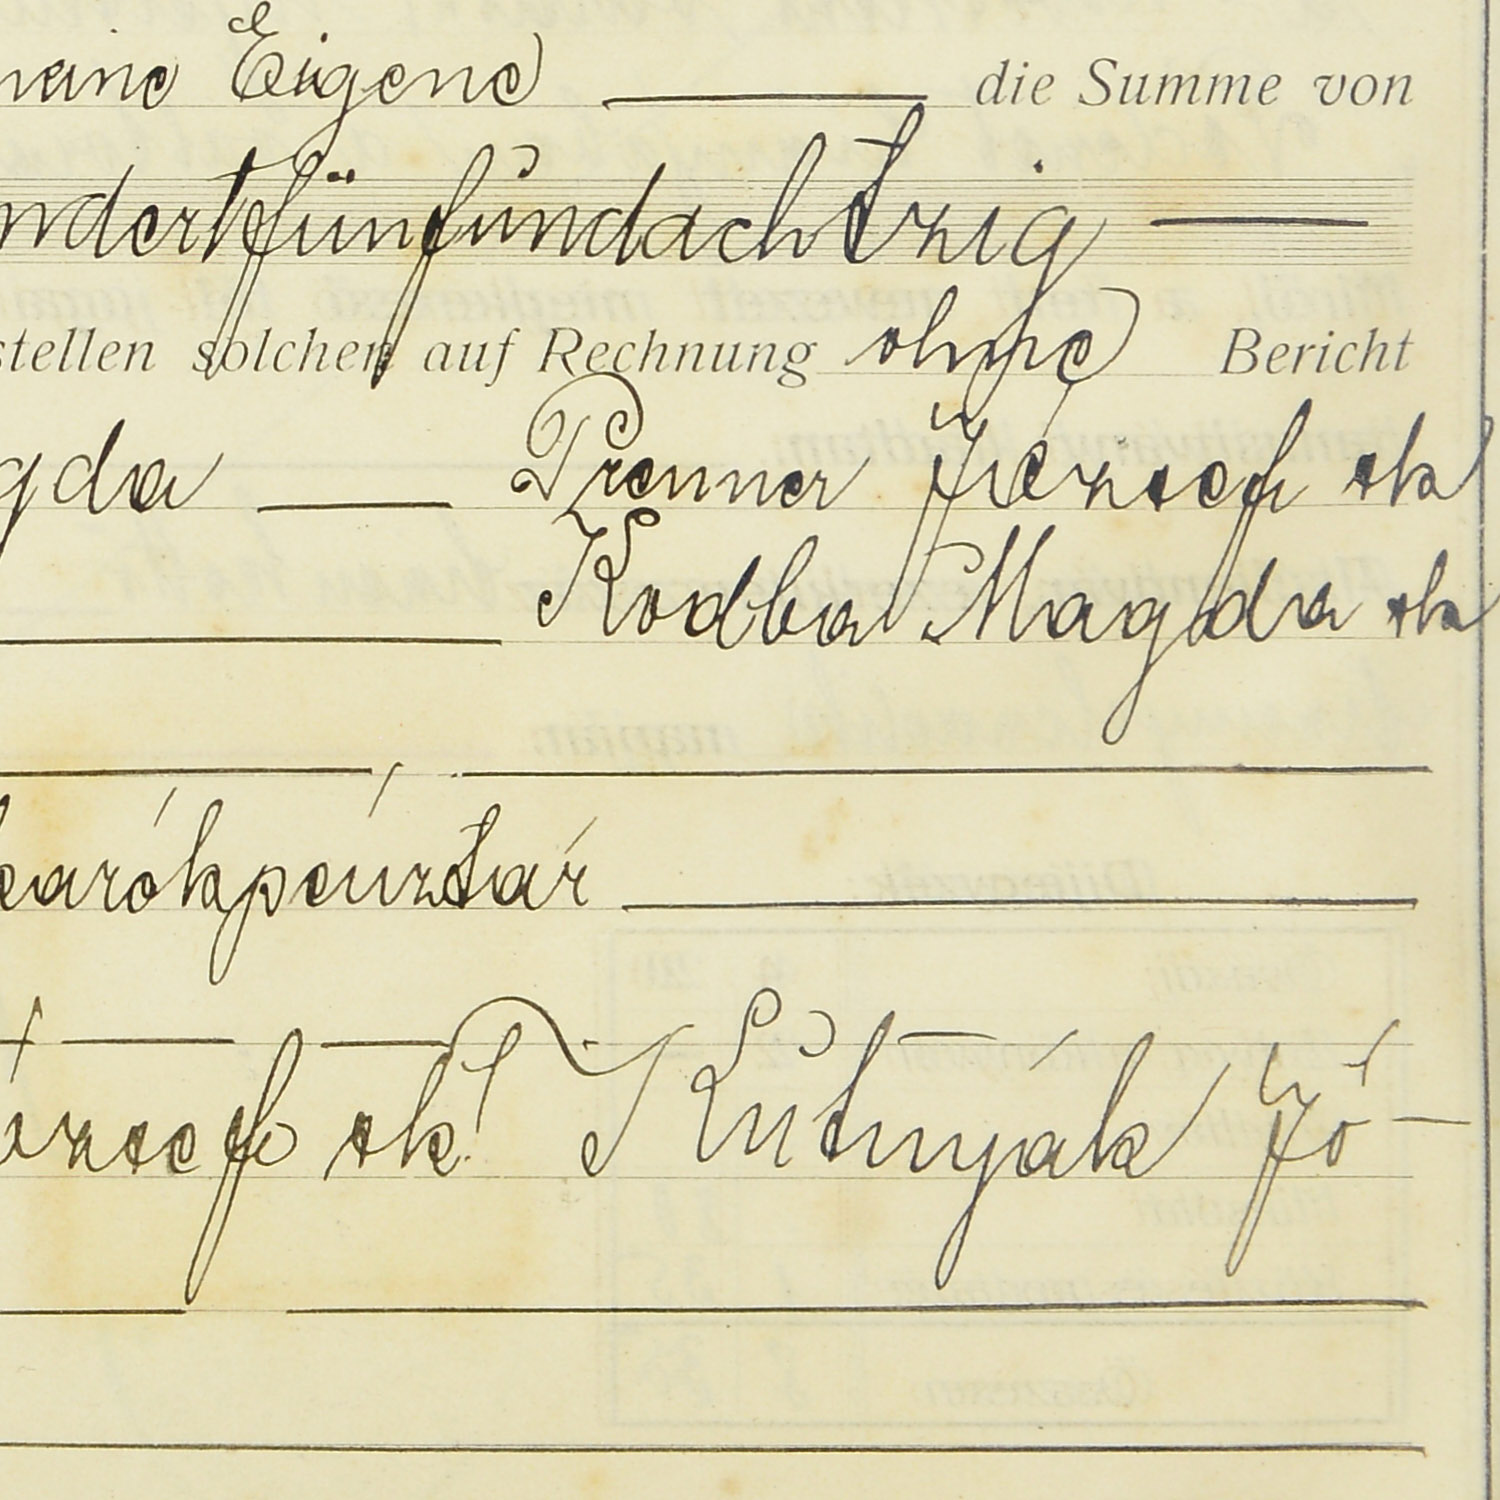 meine Eigene — die Summe von
ndertfünfundachtzig —
stellen solchen auf Rechnung ohne Bericht
gda — Prenner József sk
Kodba Magda sk
karókpénztár
József sk. Kutnyák Jó-